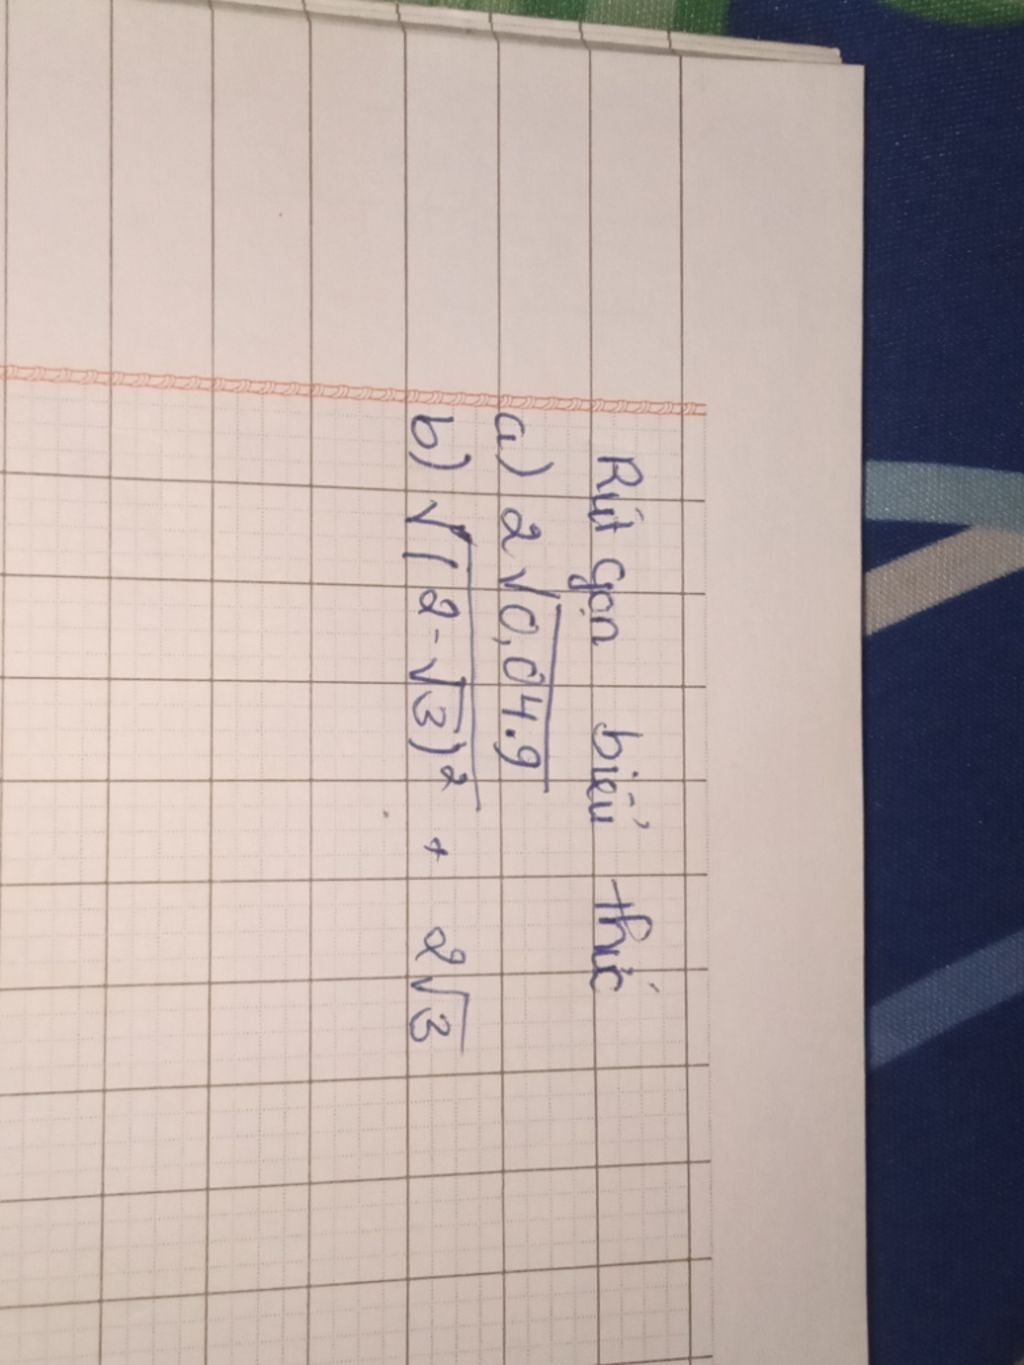 Rút gọn biểu thức
a) 2√0,04.9
b) √(2-√3)² + 2√3